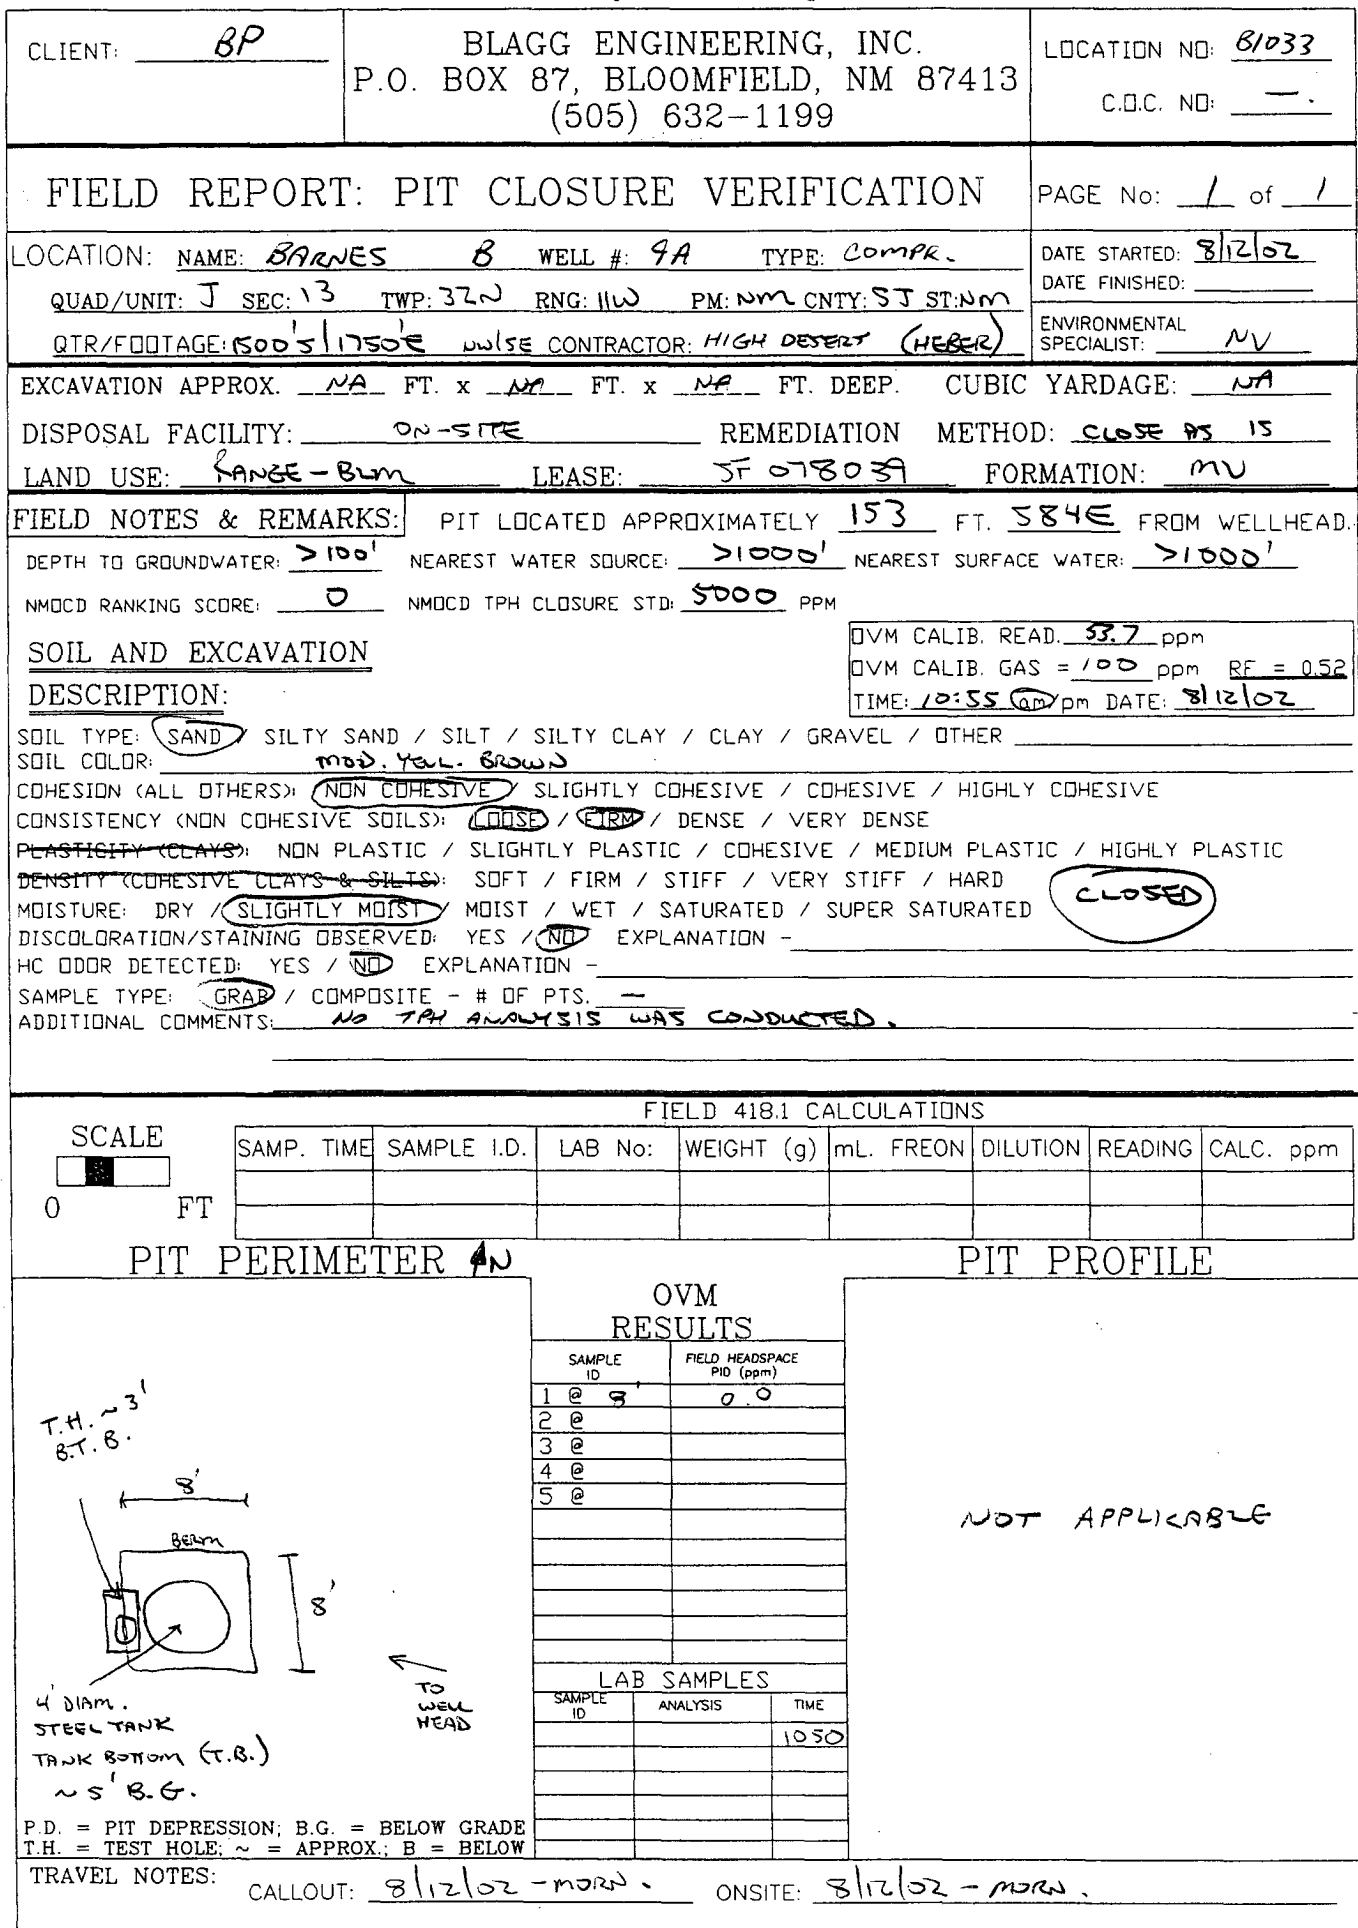 CLIENT: BP
BLAGG ENGINEERING, INC.
P.O. BOX 87, BLOOMFIELD, NM 87413
(505) 632-1199
LOCATION NO: B1033
C.O.C. NO: —.
FIELD REPORT: PIT CLOSURE VERIFICATION
PAGE No: 1 of 1
LOCATION: NAME: BARNES B WELL #: 9A TYPE: COMPR.
QUAD/UNIT: J SEC: 13 TWP: 32N RNG: 11W PM: NM CNTY: SJ ST: NM
QTR/FOOTAGE: 1500'S/1750'E NW/SE CONTRACTOR: HIGH DESERT (HEBER)
DATE STARTED: 8/12/02
DATE FINISHED:
ENVIRONMENTAL
SPECIALIST: NV
EXCAVATION APPROX. NA FT. x NA FT. x NA FT. DEEP. CUBIC YARDAGE: NA
DISPOSAL FACILITY: ON-SITE REMEDIATION METHOD: CLOSE AS IS
LAND USE: RANGE-BLM LEASE: SF 078039 FORMATION: MV
FIELD NOTES & REMARKS: PIT LOCATED APPROXIMATELY 153 FT. S84E FROM WELLHEAD.
DEPTH TO GROUNDWATER: >100' NEAREST WATER SOURCE: >1000' NEAREST SURFACE WATER: >1000'
NMOCD RANKING SCORE: 0 NMOCD TPH CLOSURE STD: 5000 PPM
OVM CALIB. READ. 53.7 ppm
OVM CALIB. GAS = 100 ppm RF = 0.52
TIME: 10:55 am/pm DATE: 8/12/02
SOIL AND EXCAVATION
DESCRIPTION:
SOIL TYPE: SAND / SILTY SAND / SILT / SILTY CLAY / CLAY / GRAVEL / OTHER
SOIL COLOR: MOD. YELL. BROWN
COHESION (ALL OTHERS): NON COHESIVE / SLIGHTLY COHESIVE / COHESIVE / HIGHLY COHESIVE
CONSISTENCY (NON COHESIVE SOILS): LOOSE / FIRM / DENSE / VERY DENSE
PLASTICITY (CLAYS): NON PLASTIC / SLIGHTLY PLASTIC / COHESIVE / MEDIUM PLASTIC / HIGHLY PLASTIC
DENSITY (COHESIVE CLAYS & SILTS): SOFT / FIRM / STIFF / VERY STIFF / HARD
CLOSED
MOISTURE: DRY / SLIGHTLY MOIST / MOIST / WET / SATURATED / SUPER SATURATED
DISCOLORATION/STAINING OBSERVED: YES / NO EXPLANATION -
HC ODOR DETECTED: YES / NO EXPLANATION -
SAMPLE TYPE: GRAB / COMPOSITE - # OF PTS. —
ADDITIONAL COMMENTS: NO TPH ANALYSIS WAS CONDUCTED.
FIELD 418.1 CALCULATIONS
SCALE
0 FT
SAMP. TIME SAMPLE I.D. LAB No: WEIGHT (g) mL. FREON DILUTION READING CALC. ppm
PIT PERIMETER N
PIT PROFILE
OVM
RESULTS
SAMPLE ID FIELD HEADSPACE PID (ppm)
1 @ 8' 0.0
2 @
3 @
4 @
5 @
T.H. ~ 3'
B.T.B.
8'
BERM
8'
TO
WELL
HEAD
4' DIAM.
STEEL TANK
TANK BOTTOM (T.B.)
~ 5' B.G.
NOT APPLICABLE
LAB SAMPLES
SAMPLE ID ANALYSIS TIME
1050
P.D. = PIT DEPRESSION; B.G. = BELOW GRADE
T.H. = TEST HOLE; ~ = APPROX.; B = BELOW
TRAVEL NOTES: CALLOUT: 8/12/02 - MORN. ONSITE: 8/12/02 - MORN.